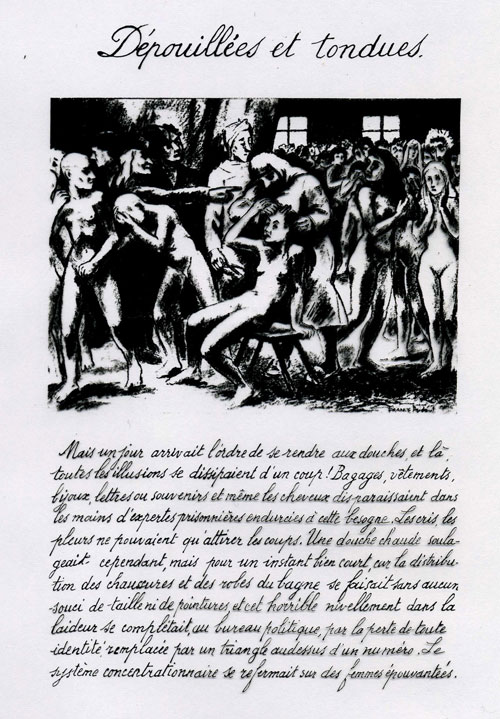 Dépouillées et tondues.
FRANCE Audoul
Mais un jour arrivait l'ordre de se rendre aux douches et là,
toutes les illusions se dissipaient d'un coup! Bagages, vêtements,
bijoux, lettres ou souvenirs et même les cheveux disparaissaient dans
les mains d'expertes prisonnières endurcies à cette besogne. Les cris, les
pleurs ne pouvaient qu'attirer les coups. Une douche chaude soula-
geait cependant, mais pour un instant bien court, car la distribu-
tion des chaussures et des robes du bagne se faisait sans aucun
souci de taille ni de pointures, et cet horrible nivellement dans la
laideur se complétait, au bureau politique, par la perte de toute
identité, remplacée par un triangle audessus d'un numéro. Le
système concentrationnaire se refermait sur des femmes épouvantées.